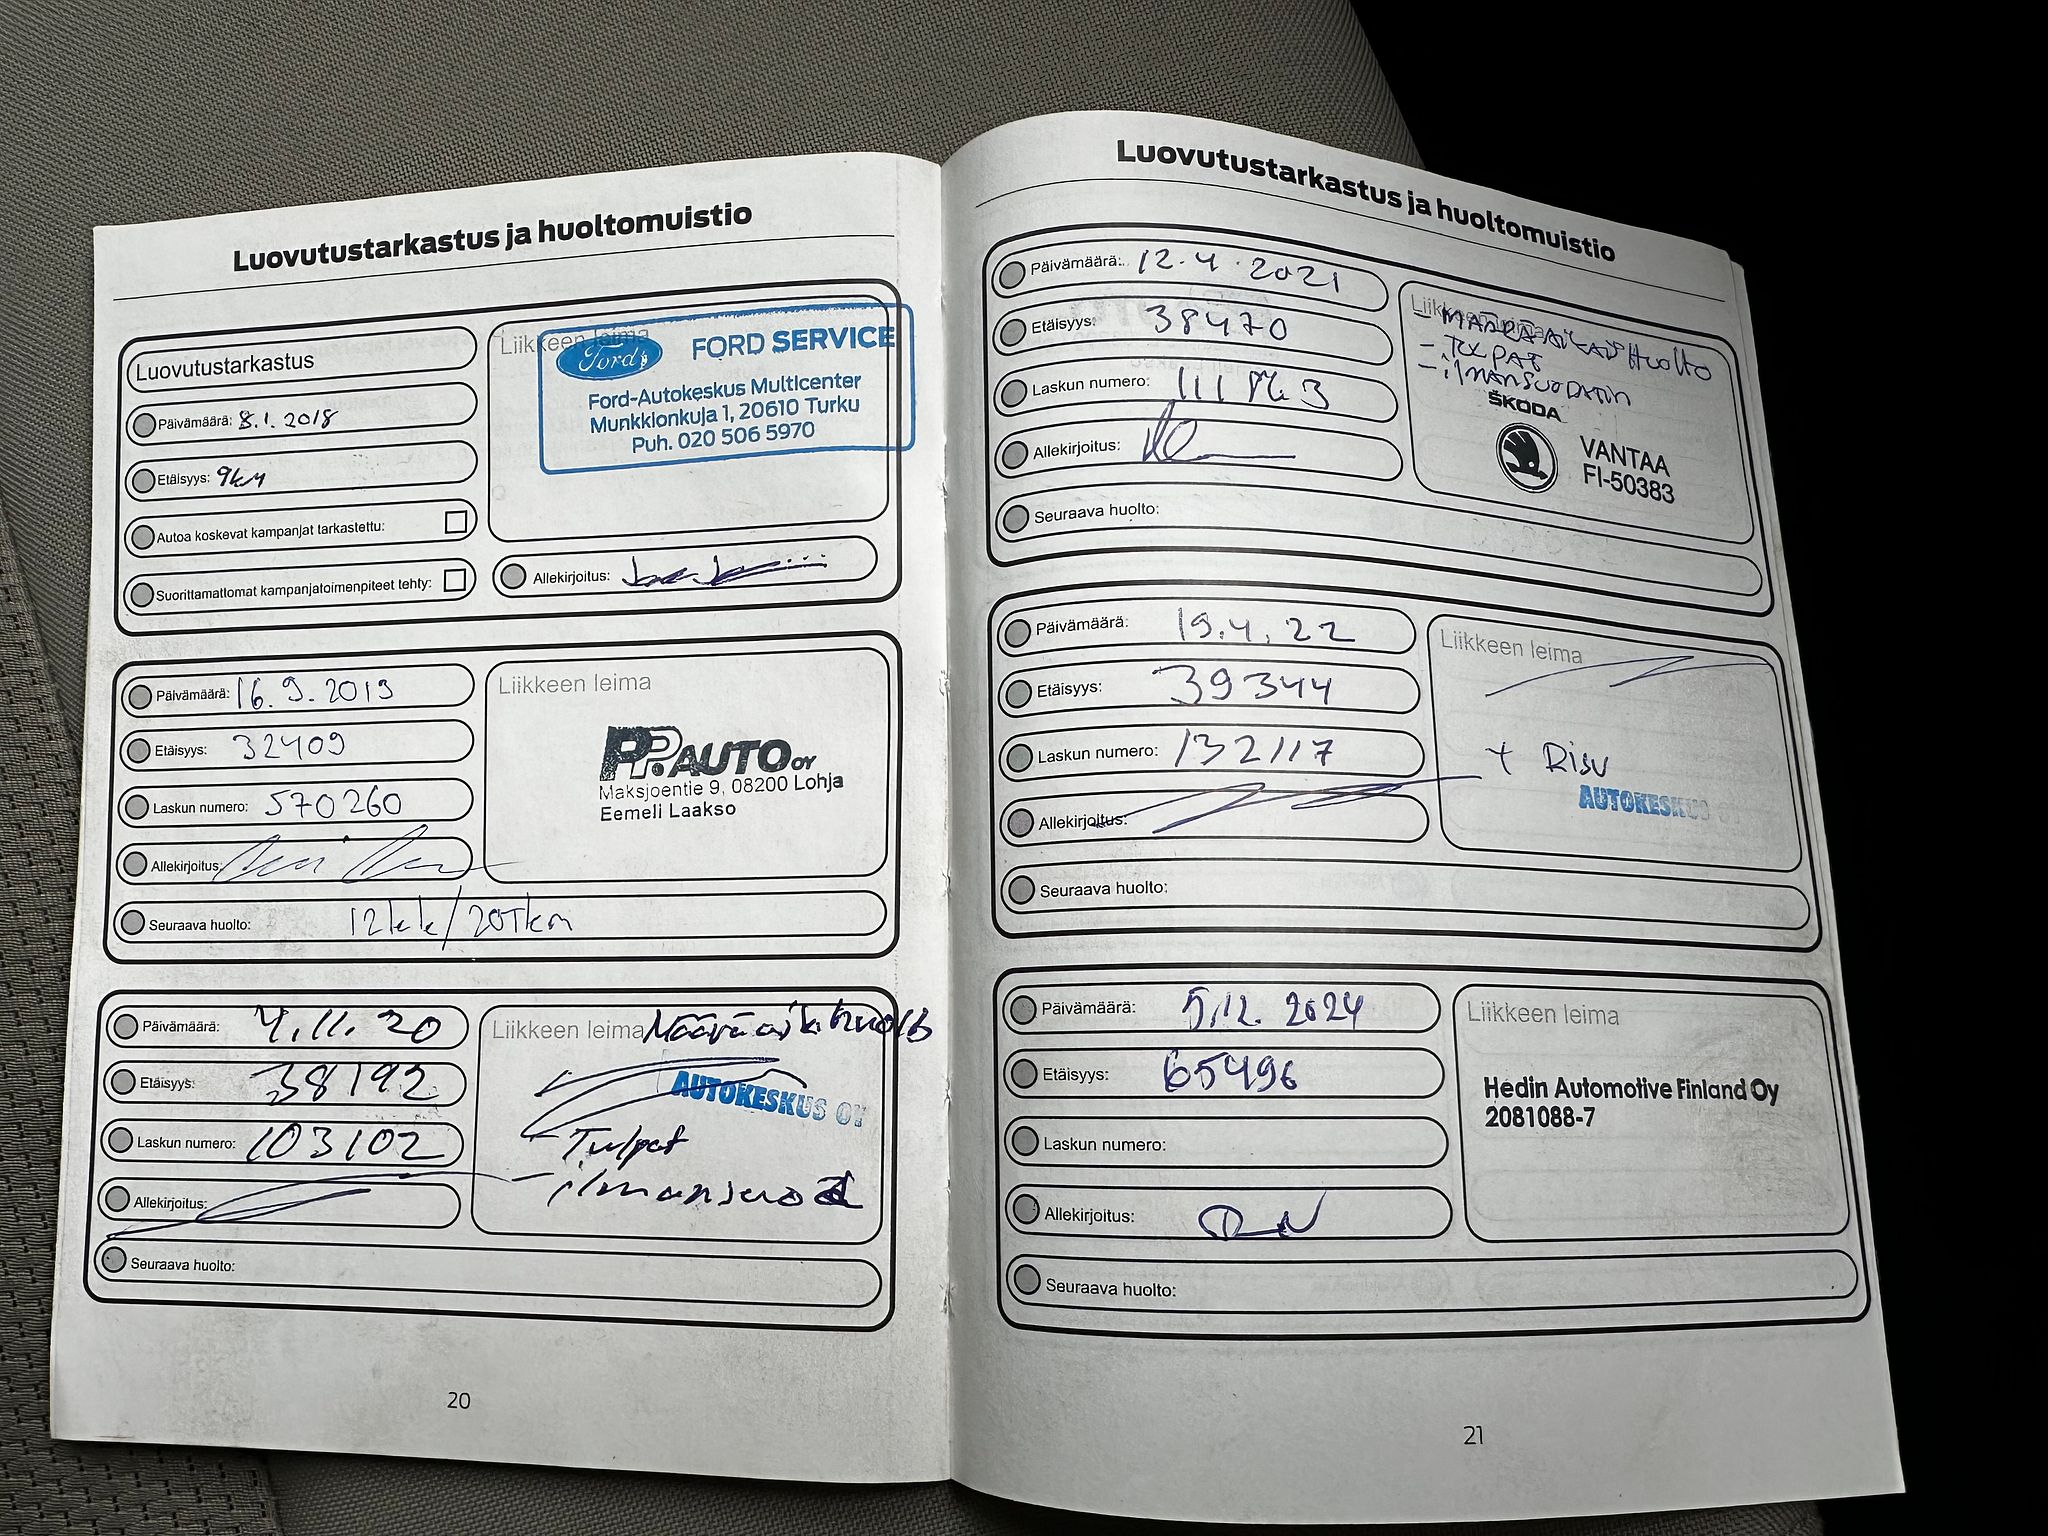 Luovutustarkastus ja huoltomuistio
Luovutustarkastus
Päivämäärä: 8.1.2018
Etäisyys: 9km
Autoa koskevat kampanjat tarkastettu:
Suorittamattomat kampanjatoimenpiteet tehty:
Liikkeen leima
Ford
FORD SERVICE
Ford-Autokeskus Multicenter
Munkkionkuja 1, 20610 Turku
Puh. 020 506 5970
Allekirjoitus:
Päivämäärä: 16.9.2019
Etäisyys: 32409
Laskun numero: 570260
Allekirjoitus:
Seuraava huolto: 12kk/20Tkm
Liikkeen leima
PP.AUTO OY
Maksjoentie 9, 08200 Lohja
Eemeli Laakso
Päivämäärä: 4.11.20
Etäisyys: 38192
Laskun numero: 103102
Allekirjoitus:
Seuraava huolto:
Liikkeen leima Määräaik.huolto
AUTOKESKUS OY
Tulpat
20
Luovutustarkastus ja huoltomuistio
Päivämäärä: 12.4.2021
Etäisyys: 38470
Laskun numero:
Allekirjoitus:
Seuraava huolto:
Liikkeen leima
- MÄÄRÄAIKAIS Huolto
- TULPAT
- ilMANSUODATIN
ŠKODA
VANTAA
FI-50383
Päivämäärä: 19.4.22
Etäisyys: 39344
Laskun numero: 132117
Allekirjoitus:
Seuraava huolto:
Liikkeen leima
+ Risu
AUTOKESKUS
Päivämäärä: 5.12.2024
Etäisyys: 65496
Laskun numero:
Allekirjoitus:
Seuraava huolto:
Liikkeen leima
Hedin Automotive Finland Oy
2081088-7
21